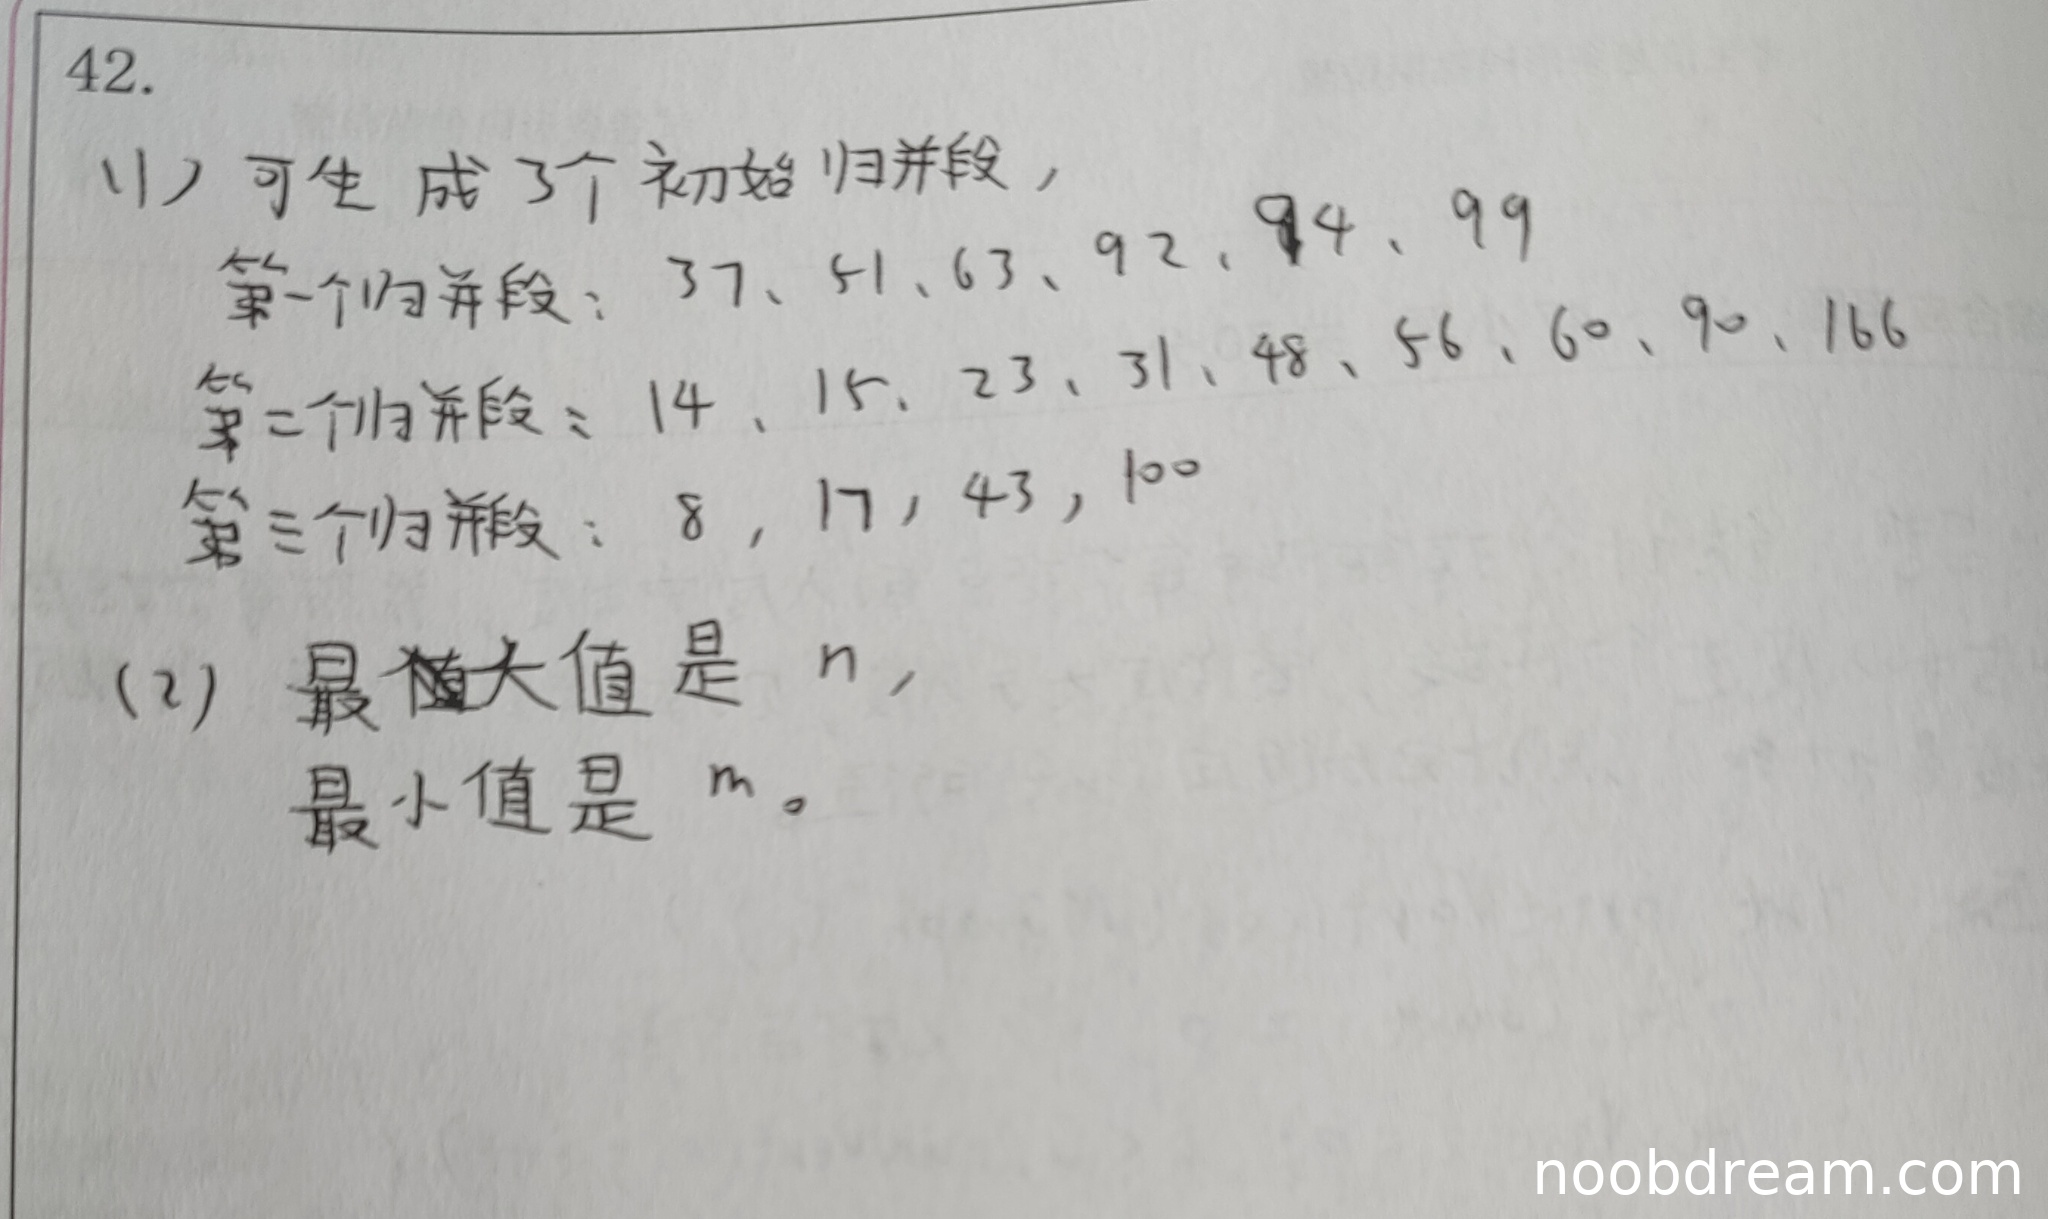 42.
(1) 可生成3个初始归并段,
第一个归并段: 37、51、63、92、94、99
第二个归并段: 14、15、23、31、48、56、60、90、166
第三个归并段: 8, 17, 43, 100
(2) 最大值是 n,
最小值是 m。
noobdream.com